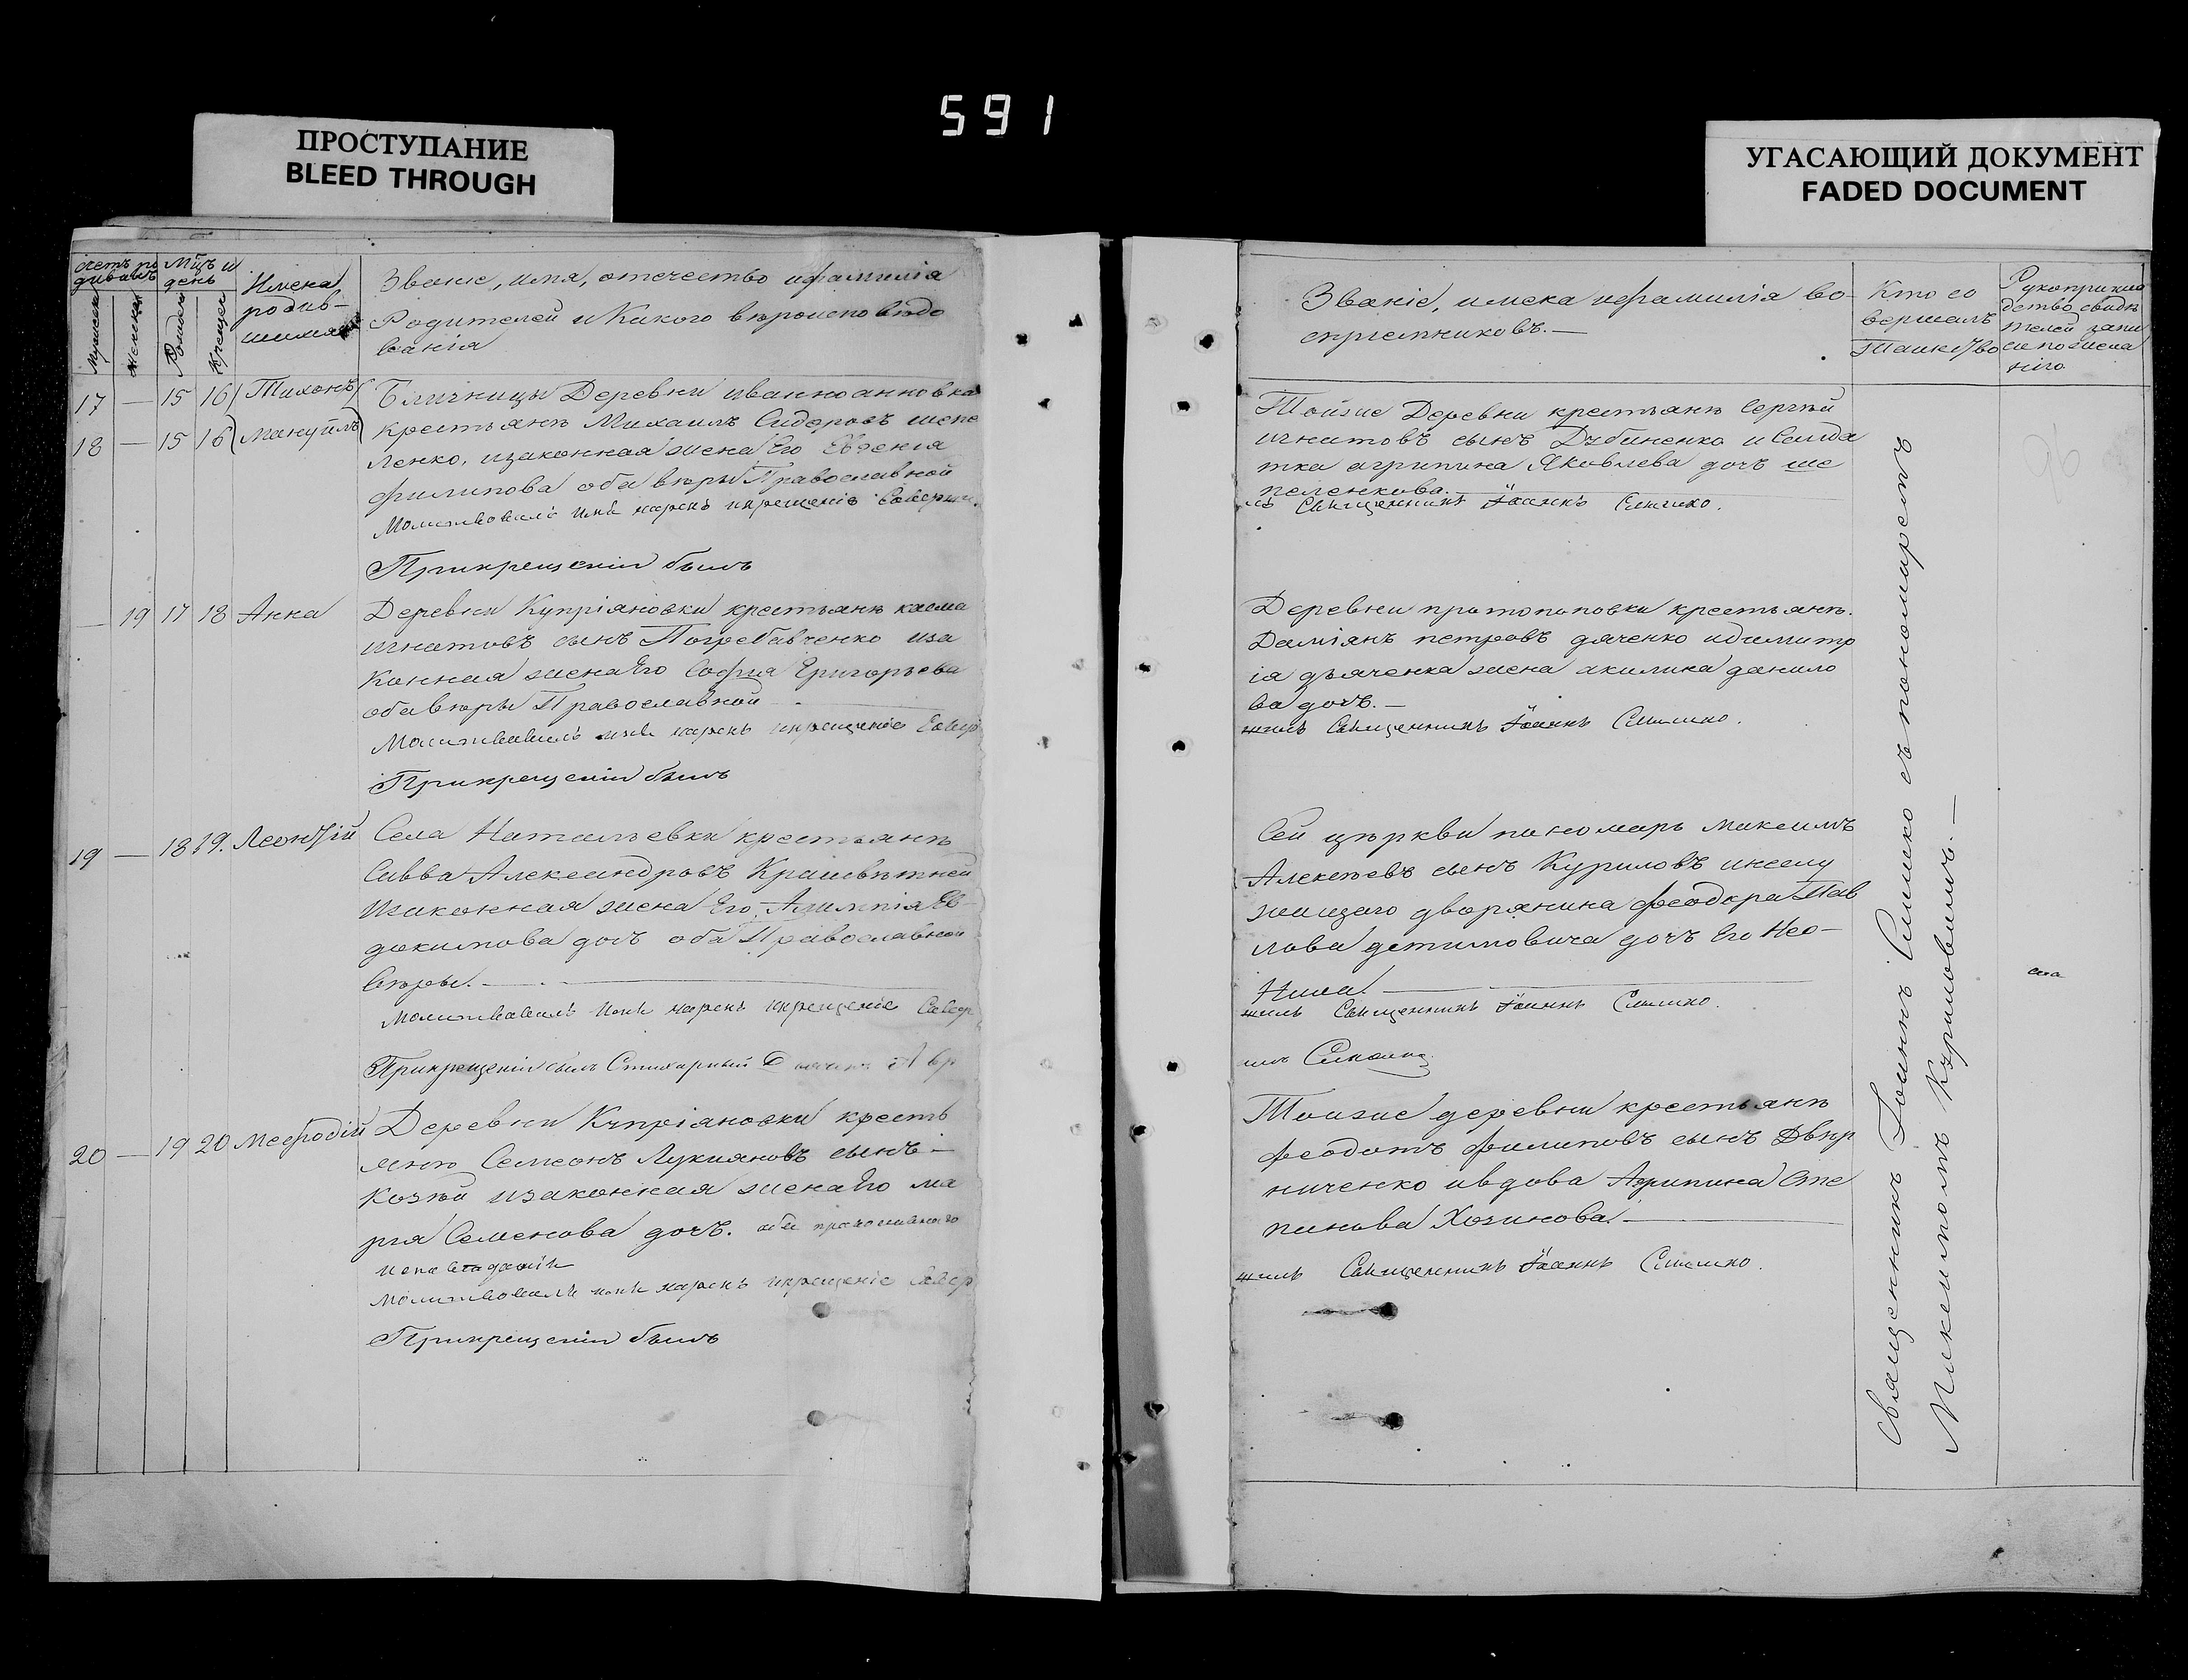 591
ПРОСТУПАНИЕ
BLEED THROUGH
УГАСАЮЩИЙ ДОКУМЕНТ
FADED DOCUMENT
Мцъ и
день
Имена
родив-
шихся
Званіе, имя, отечество ифамилія
Родителей и Какого вѣроисповѣдо
ванія
17 — 15 16 Тихонъ
18 — 15 16 Мануилъ
Близницы Деревни иванноанновка
крестьянъ Михаилъ Сидоровъ шепе
ленко, изаконная жена Его Евгенія
филипова оба вѣры Православной
Молитвовалъ имя нарекъ икрещеніе Соверши
Прикрещеніи былъ
— 19 17 18 Анна
Деревни Купріяновки крестьянъ касма
игнатовъ сынъ Погребавченко иза
конная жена Его Софія Григорьева
оба вѣры Православной
Молитвовалъ имя нарекъ икрещеніе Совер
Прикрещеніи былъ
19 — 18 19. Леонтій
Села Натальевки крестьянъ
Савва Александровъ
Изаконная жена Его Ев-
докимова дочъ оба Православной
Вѣры.
Молитвовалъ имя нарекъ икрещеніе Совер
Прикрещеніи былъ Стихарный
20 — 19 20 Мефодій
Деревни Купріяновки кресть
янъ Семеонъ Лукияновъ сынъ —
Козѣй изаконная жена Его ма
рія Семенова дочъ. оба православнаго
исповѣданія
Молитвовалъ имя нарекъ икрещеніе Совер
Прикрещеніи былъ
Званіе, имена ифамилія во-
спріемниковъ. —
Кто со
вершалъ
Таинство
Рукоприкла
дство свидѣ
телей запи
си по жела
нію
Тойже Деревни крестьянъ Сергѣй
игнатовъ сынъ Дубиненко и
агрипина Яковлева дочъ ше
пеленкова.
лъ Священникъ Іоаннъ Симко.
Деревни протопоповки крестьянъ.
Даміянъ петровъ дяченко идимитр
ія дьяченка жена акилина данило
ва дочъ. —
шилъ Священникъ Іоаннъ
Сей церкви паномарь Максимъ
Алексѣевъ сынъ Куриловъ
дворянина феодора Пав
лова дочъ Его Нео-
нила.
шилъ Священникъ Іоаннъ
Тойже деревни крестьянъ
феодотъ филиповъ сынъ Двѣр
ниченко ивдова Агрипина Сте
панова
шилъ Священникъ Іоаннъ
Священникъ Іоаннъ съ пономаремъ
Максимомъ Куриловимъ. —